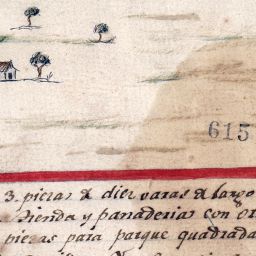 615
3. piezas de diez varas de largo
tienda y panaderia con
piezas para parque quadrada